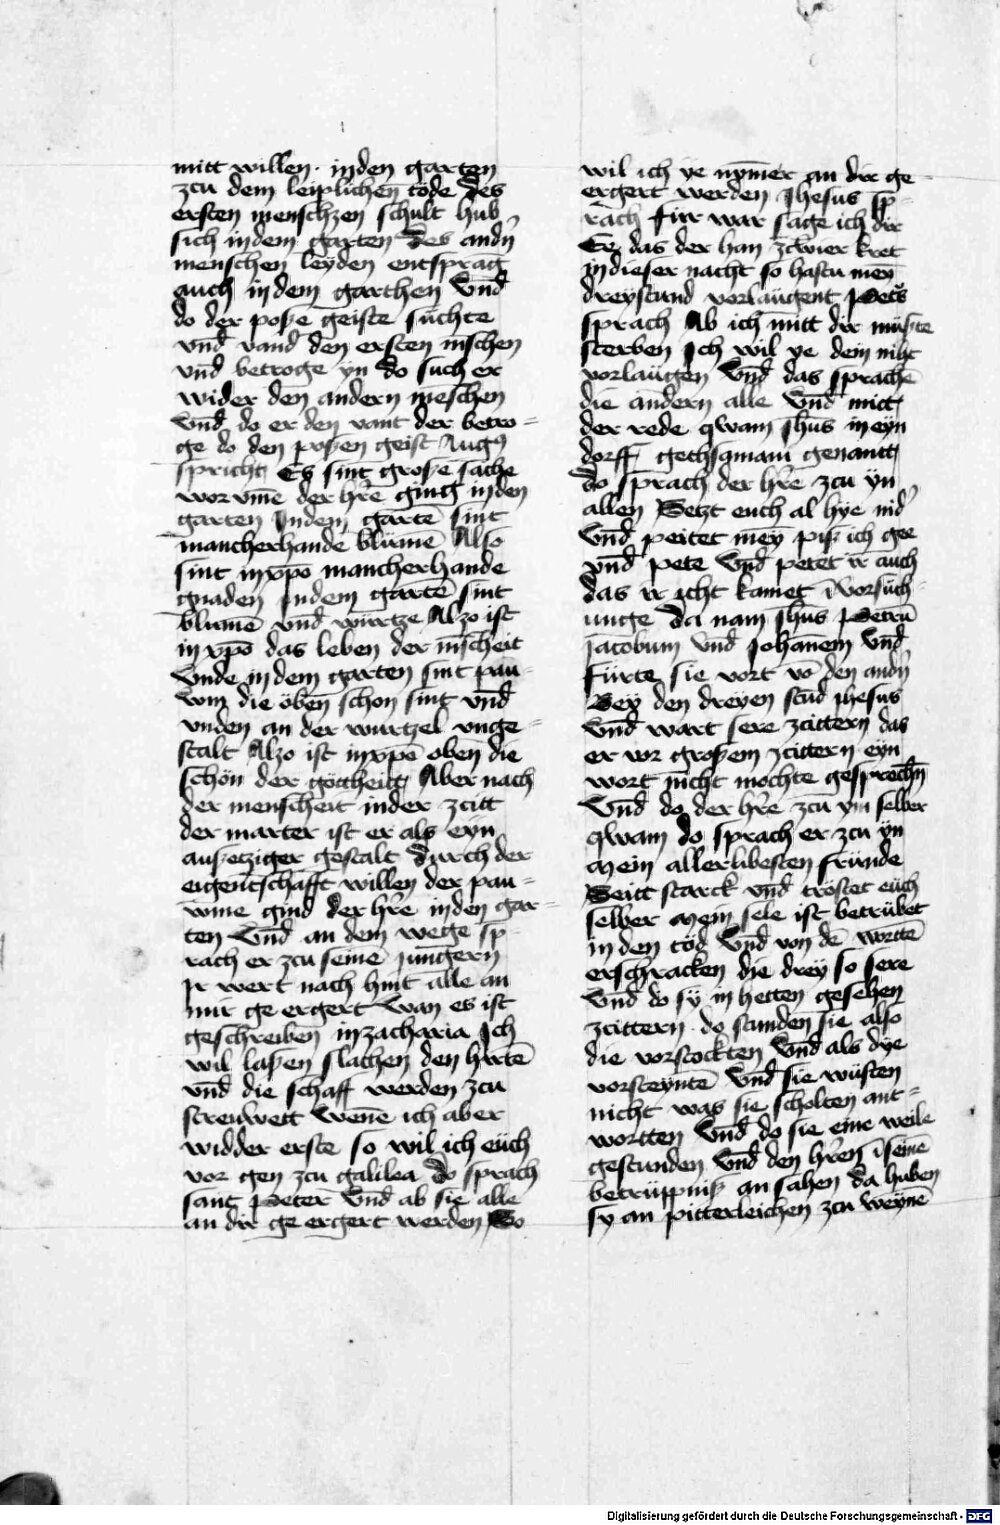 mitt willen · in den garten
zcu dem leiplichen tode des
ersten menschzen schult hub
sich in dem garten des andn̄
menschen leyden entsprag
auch in dem garthen Vnd̄
do der poße geiste suchte
vnd vand den ersten mschen
vnd betroge yn do such er
wider den andern meschen
Vnd do er den vant der betro=
ge do den poßen geist Augꝰ
spricht Es sint große sache
wor vme der hr̄e ging in den
garten In dem garte sint
mancherhande blume Also
sint in xpō mancherhande
gnaden In dem garte sint
blume vnd wurtze Alzo ist
in xpō das leben der mscheit
Vnde in dem garten sint pau=
wm die oben schon sint vnd
vnden an der wurtzel vnge=
stalt Alzo ist in xpō oben die
schon der gottheitt Aber nach
der menscheit in der zcitt
der marter ist er als eyn
außetziger gestalt durch der
eigentschafft willen der pau=
wme gind der hr̄e in den gar=
ten Vnd an dem wege sp=
rach er zcu seinē iungern
Ir wert nach hint alle an
mir ge ergert wan es ist
geschreiben in zacharia Ich
wil laßen slachen den hirtē
vnd die schaff werden zcu
streuwett Wenē ich aber
widder erste so wil ich euch
vor gen zcu galilea do sprach
sant Peter Vnd ab sie alle
an dir ge ergert werden So
wil ich ye nymer an dir ge=
ergert werden Ihesus sp=
rach fur war sage ich dir
Ee das der han zcwier kret
in dieser nacht so hastu mey
dreystund vorlaugent Petꝰ
sprach Ab ich mitt dir muste
sterben Ich wil ye dein niht
vorlaugen Vnd das sprachē
die andern alle Vnd mitt
der rede qwam ihus in eyn
dorff gethsamani genantt
do sprach der hr̄e zcu yn
allen Setzt euch al hye nid̄
Vnd peitet mey piß ich gee
vnd pete Vnd petet ir auch
das ir icht kamet ī vorsuch
unge da nam ihus Petrū
Iacobum vnd Iohanem Vnd
furte sie vort vō den andn̄
Bey den dreyen stūd ihesus
Vnd wart sere zcittern das
er vor großem zcittern eyn
wort nicht mochte gesprochn̄
Vnd do der hr̄e zcu ym selber
qwam do sprach er zcu yn
Mein allerlibesten frunde
Seitt starck vnd trostet euch
selber Mein sele ist betrubet
in den tod Vnd von dē wortē
erschracken die drey so sere
Vnd do sy in hetten gesehen
zcittern · do stunden sie also
die vorstockten Vnd als dye
vorsteyntē Vnd sie wusten
nicht was sie scholten ant=
wortten Vnd do sie eine weile
gestunden Vnd den hr̄en ī seinē
betrupniß an sahen da huben
sy an pitterleichen zcu weynē
Digitalisierung gefördert durch die Deutsche Forschungsgemeinschaft - DFG